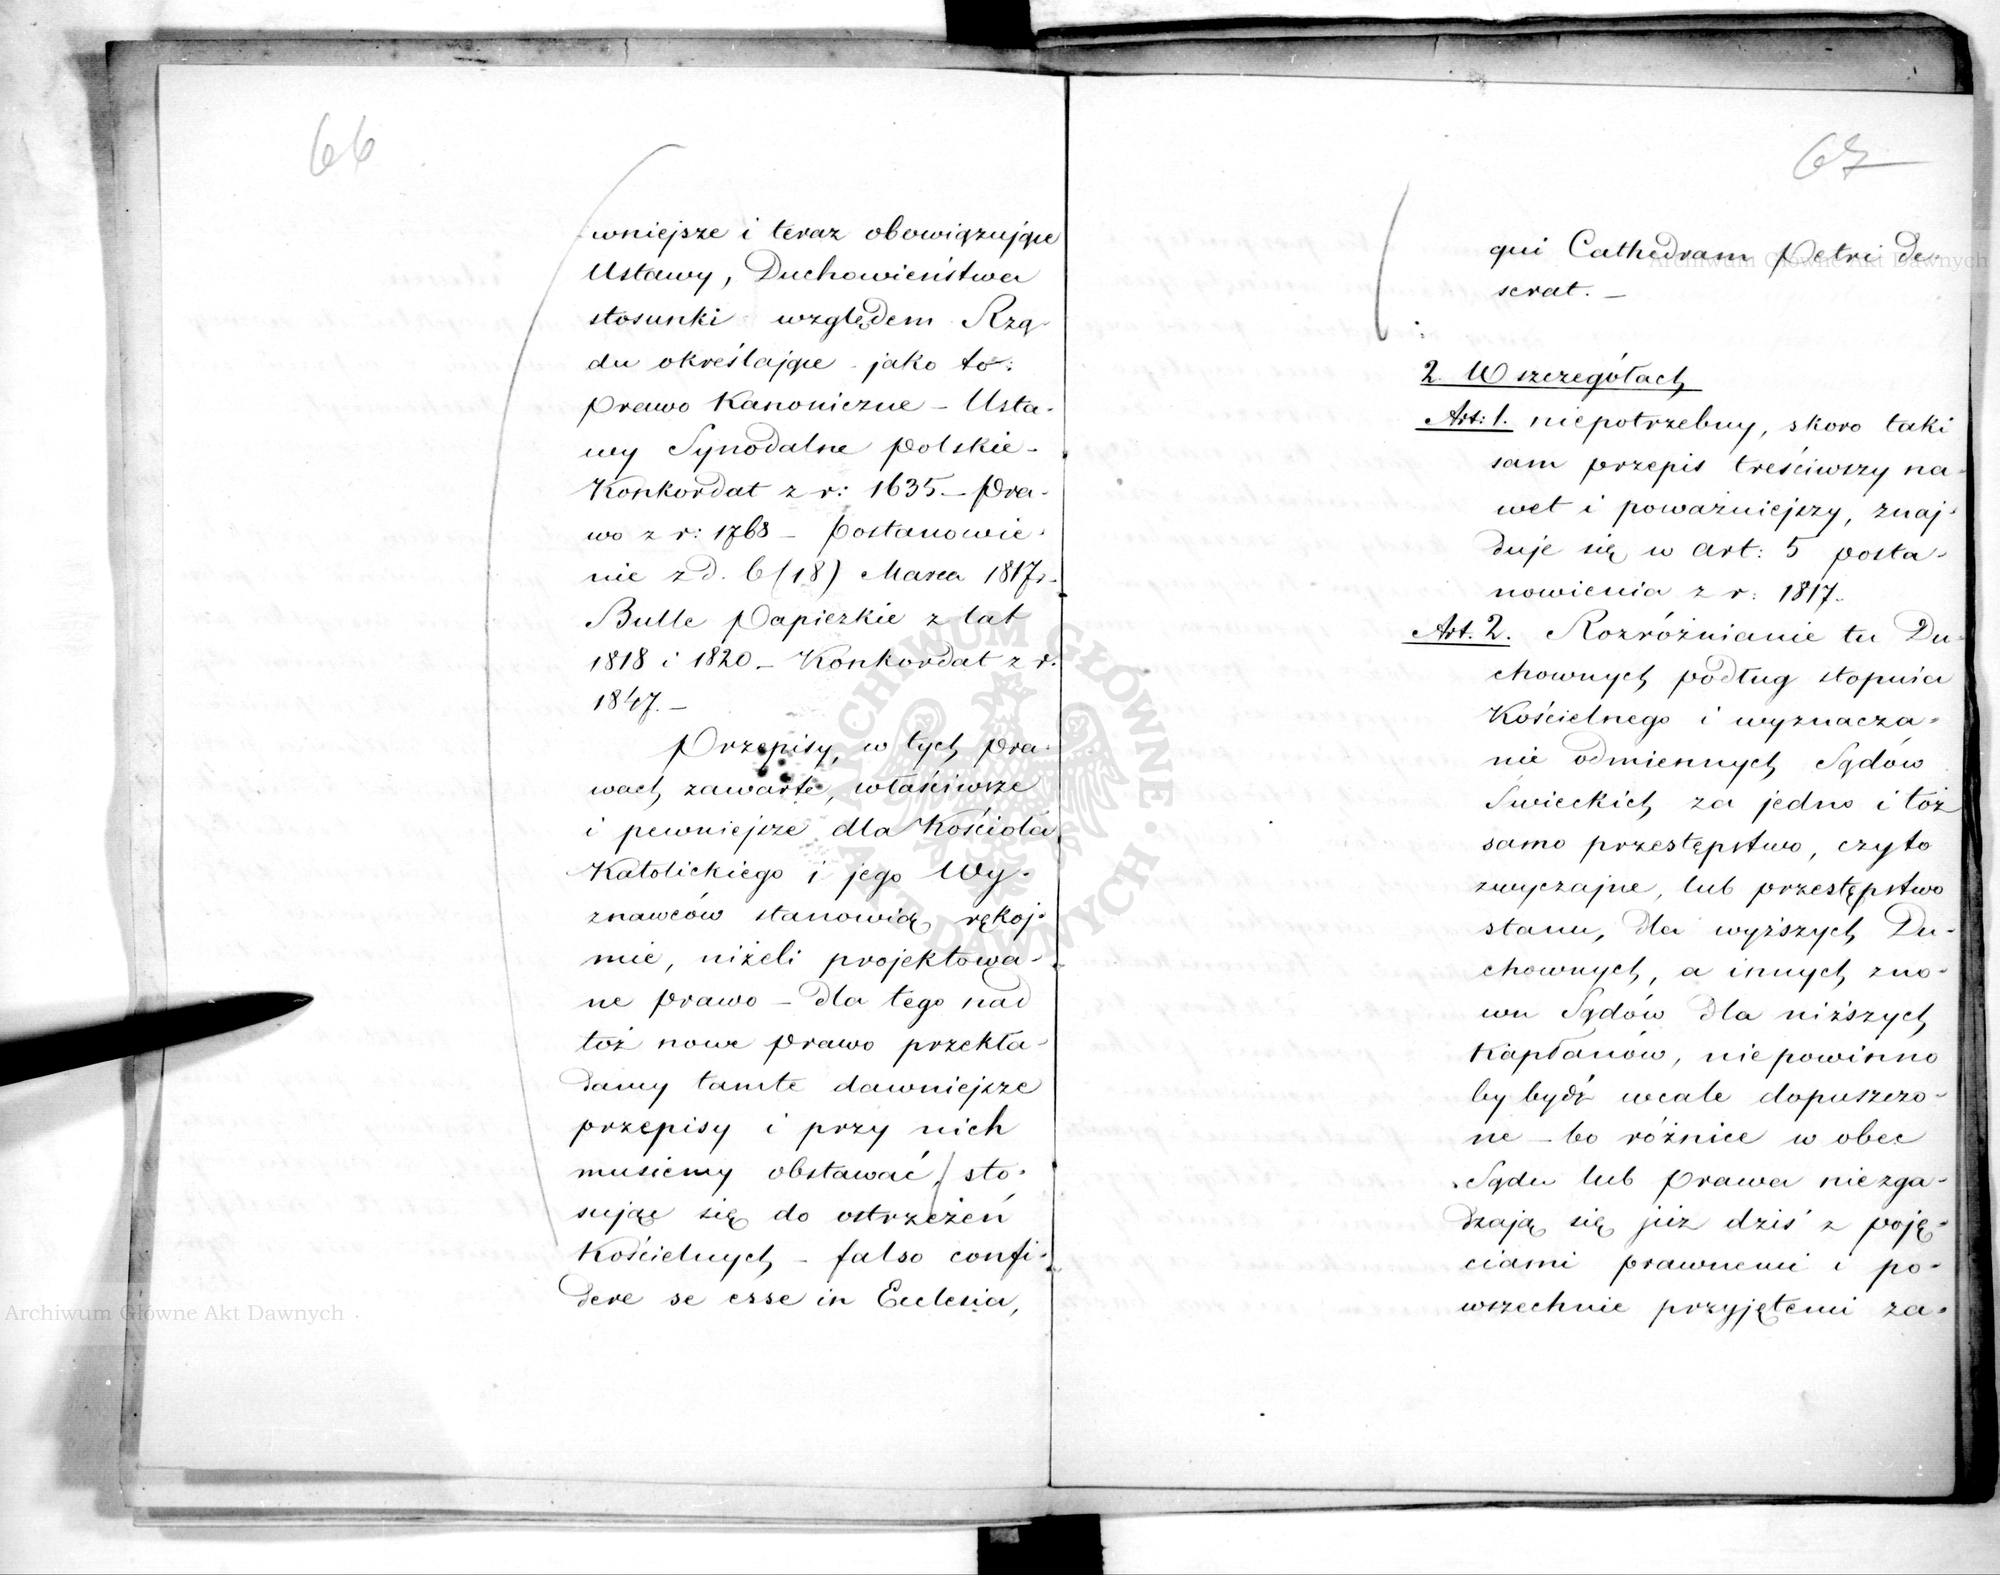 66
wniejsze i teraz obowiązujące
Ustawy, Duchowieństwa
stosunki względem Rzą-
du określające jako to:
Prawo Kanoniczne – Usta-
wy Synodalne Polskie –
Konkordat z r: 1635. – Pra-
wo z r: 1768 – Postanowie-
nie z d. 6 (18) Marca 1817 r.
Bulle Papiezkie z lat
1818 i 1820. – Konkordat z r.
1847. –
Przepisy, w tych pra-
wach zawarte, właściwsze
i pewniejsze dla Kościoła
Katolickiego i jego Wy-
znawców stanowią rękoj-
mie, niżeli projektowa-
ne prawo – dla tego nad
toż nowe prawo przekła-
damy tamte dawniejsze
przepisy i przy nich
musiemy obstawać, sto-
sując się do ostrzeżeń
Kościelnych – falso confi-
dere se esse in Ecclesia,
67
qui Cathedram Petri de-
serat. –
2. W szczegółach
Art: 1. niepotrzebny, skoro taki
sam przepis treściwszy na-
wet i poważniejszy, znaj-
duje się w art: 5 posta-
nowienia z r: 1817.
Art. 2. Rozróżnianie tu Du-
chownych podług stopnia
Kościelnego i wyznacza-
nie odmiennych Sądów
Świeckich za jedno i toż
samo przestępstwo, czyto
zwyczajne, lub przestępstwo
stanu, dla wyższych Du-
chownych, a innych zno-
wu Sądów dla niższych
Kapłanów, nie powinno
by bydź wcale dopuszczo-
ne – bo różnice w obec
Sądu lub Prawa niezga-
dzają się już dziś z poję-
ciami prawnemi i po-
wszechnie przyjętemi za-
Archiwum Główne Akt Dawnych
Archiwum Główne Akt Dawnych
ARCHIWUM GŁÓWNE AKT DAWNYCH